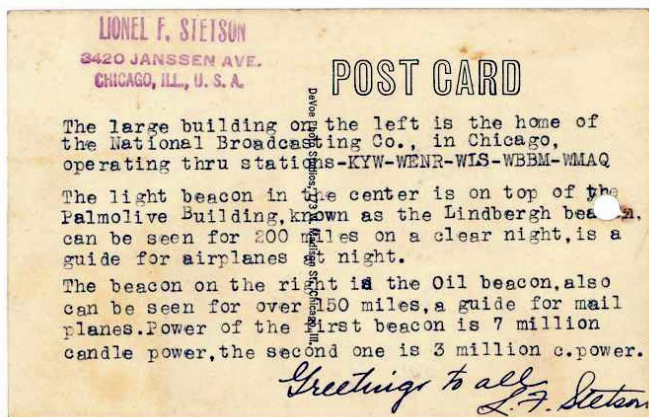 LIONEL F. STETSON
3420 JANSSEN AVE.
CHICAGO, ILL., U. S. A.
POST CARD
The large building on the left is the home of
the National Broadcasting Co., in Chicago,
operating thru stations-KYW-WENR-WLS-WBBM-WMAQ
The light beacon in the center is on top of the
Palmolive Building,known as the Lindbergh
can be seen for 200 miles on a clear night,is a
guide for airplanes at night.
The beacon on the right is the Oil beacon,also
can be seen for over 150 miles,a guide for mail
planes.Power of the first beacon is 7 million
candle power,the second one is 3 million c.power.
Greetings to all
L. F. Stetson
DeVoe Studios, Madison St., Chicago, Ill.